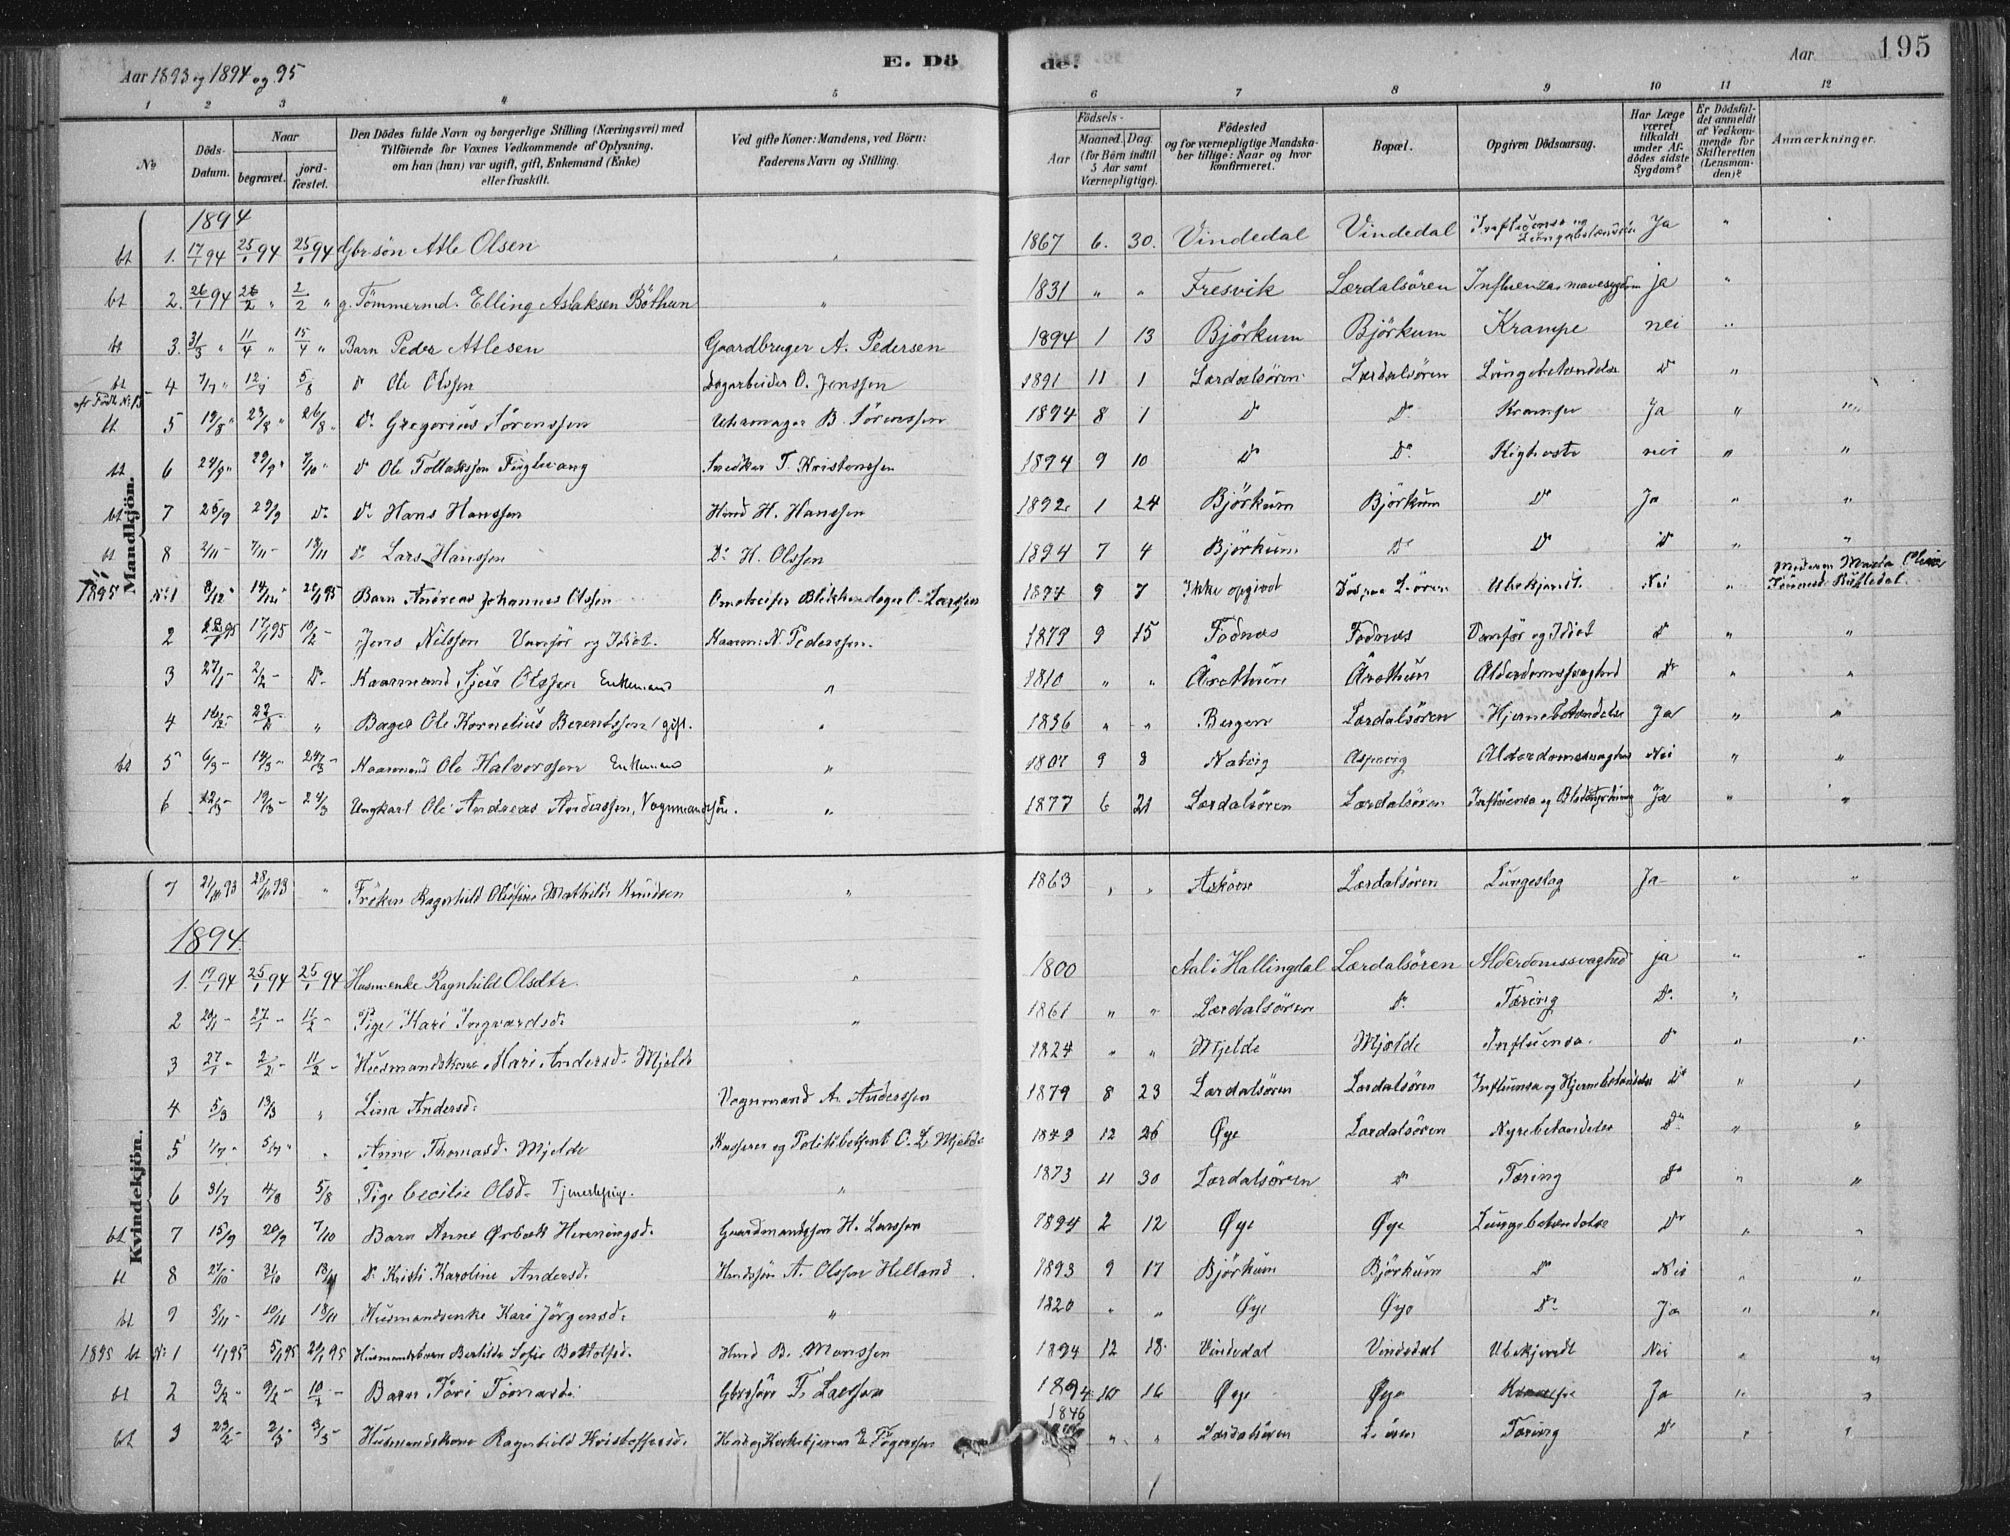 Aar 1893 og 1894 og 95
E. Dö
de.
Aar
195
1 2 3 4 5 6 7 8 9 10 11 12
No
Döds-Datum.
Naar
begravet.
jord-fæstet.
Den Dödes fulde Navn og borgerlige Stilling (Næringsvei) med
Tilföiende for Voxnes Vedkommende af Oplysning,
om han (hun) var ugift, gift, Enkemand (Enke)
eller fraskilt.
Ved gifte Koner: Mandens, ved Börn:
Faderens Navn og Stilling.
Födsels-
Aar
Maaned. Dag.
(for Börn indtil
5 Aar samt
Værnepligtige).
Födested
og for værnepligtige Mandska-
ber tillige: Naar og hvor
konfirmeret.
Bopæl.
Opgiven Dödsaarsag.
Har Læge
været
tilkaldt
under Af-
dödes sidste
Sygdom?
Er Dödsfal-
det anmeldt
af Vedkom-
mende for
Skifteretten
(Lensman-
den)?
Anmærkninger.
Mandkjön.
1894
bt 1. 17/1 94 25/1 94 25/1 94 Gbrsön Atle Olsen " 1867 6. 30. Vindedal Vindedal Influensa og Lungebetændelse Ja "
bt 2. 26/1 94 26/2 " 2/2 " g. Tömmermd. Elling Aslaksen Böthun " 1831 " " Fresvik Lærdalsören Influenza mavesygdom ja "
bt 3. 31/3 " 11/4 " 15/4 " Barn Peder Atlesen Gaardbruger A. Pedersen 1894 1 13 Björkum Björkum Krampe nei "
bt 4 7/7 " 12/7 5/8 Do Ole Olssen Dagarbeider O. Jenssen 1891 11 1 Lærdalsören Lærdalsören Lungebetændelse Do "
bt 5 19/8 " 23/8 " 26/8 " Do Gregorius Sörenssen Uhrmager B. Sörenssen 1894 8 1 Do Do Krampe Ja " "
bt 6 24/9 " 29/9 " 7/10 " Do Ole Tollakssen Snedker T. Kristenssen 1894 9 10 Do Do Kighoste nei " "
bt 7 25/9 29/9 Do Do Hans Hanssen Hmd H. Hanssen 1892 1 24 Björkum Björkum Do Ja " "
bt 8 2/11 - 7/11 - 18/11 Do Lars Hanssen Do H. Olssen 1894 7 4 Björkum Do Do Do " "
1895 No 1 8/12 " 14/12 " 20/1 95 Barn Andreas Johannes Olssen Omreiser Blikkenslager O. Larssen 1894 9 7 Ikke opgivet Lören Ubekjendt. Nei " Moderen Maria Oline
2 95 17/1 95 10/2 - Jens Nilssen Vanför og Idiot. Kaarm: N. Pederssen. 1879 9 15 Fodnæs Fodnæs Vanför og Idiot Do " "
3 27/1 - 2/2 - Do Kaarmand Sjur Olssen Enkemand " 1810 " " Alderdomssvaghed Do " "
4 16/2 - 22/2 - " Bager Ole Kornelius Berentssen / gift. " 1836 " " Bergen Lærdalsören Hjernebetændelse Ja " "
bt 5 6/3 - 14/3 - 24/3 - Kaarmand Ole Halvorssen Enkemand " 1807 9 8 Natvig Aspevig Alderdomssvaghed Nei " "
6 12/3 - 19/3 - 24/3 Ungkarl Ole Andreas Anderssen, Vognmandssön. " 1877 6 21 Lærdalsören Lærdalsören Influensa og Ja " "
Kvindekjön.
7 21/ 93 28/ 93 " Fröken Ragnhild Mathilde Knudsen " 1863 " " Asköen Lærdalsören Lungeslag Ja " "
1894.
1. 19/1 94 25/1 94 25/1 94 Husm.enke Ragnhild Olsdtr. " 1800 Aal i Hallingdal Lærdalsören Alderdomssvaghed ja " "
2 20/1 - 27/1 - 11/2 - Pige Kari Ingvardsd. " 1861 " " Lærdalsören Do Tæring Do "
3 27/1 - 2/2 - 11/2 - Husmandskone Mari Andersd. Mjelde 1824 " " Mjelde Mjelde Influensa. Do " "
4 5/3 13/3 " Lina Andersd. Vognmand A. Anderssen 1879 8 23 Lærdalsören Lærdalsören Influensa og Hjernebetændelse Do " "
5 1/7 " 5/7 " " Anne Thomasd. Mjelde Kasserer og Politibetjent O. L. Mjelde 1849 12 26 Øye Lærdalsören Nyrebetændelse Do " "
6 31/7 4/8 5/8 Pige Cecilie Olsd. Tjenestepige. " 1873 11 30 Lærdalsören Do Tæring Do " "
bt 7 15/9 20/9 7/10 Barn Anne Ørbæk Henningsd. Gaardmandssön H. Larssen 1894 2 12 Øye Øye Lungebetændelse Do " "
bt 8 27/10 - 31/10 18/11 Do Kristi Karoline Andersd. Hmdssön A. Olssen Helland 1893 9 17 Björkum Björkum Do Nei " "
bt 9 5/11 - 10/11 18/11 Husmandsenke Kari Jörgensd. " 1820 " " Øye Øye Do Ja " "
1895 bt No 1 4/1 95 5/1 95 20/1 95 Husmandsbarn Bertilde Sofie Bottolfsd. Hmd B. Monssen 1894 12 18 Vindedal Vindedal Ubekjendt Nei " "
bt 2 3/2 - 9/2 - 10/2 - Barn Gbrssön T. Larssen 1894 10 16 Øye Øye Krampe Ja " "
bt 3 23/2 - 2/3 3/3 - Husmandskone Ragnhild Kristoffersd. Hmd og Kirketjener 1846 " " Lærdalsören L. ören Tæring Do " "